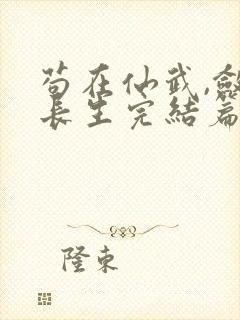 苟在仙武,斂
長生完結篇
隆東